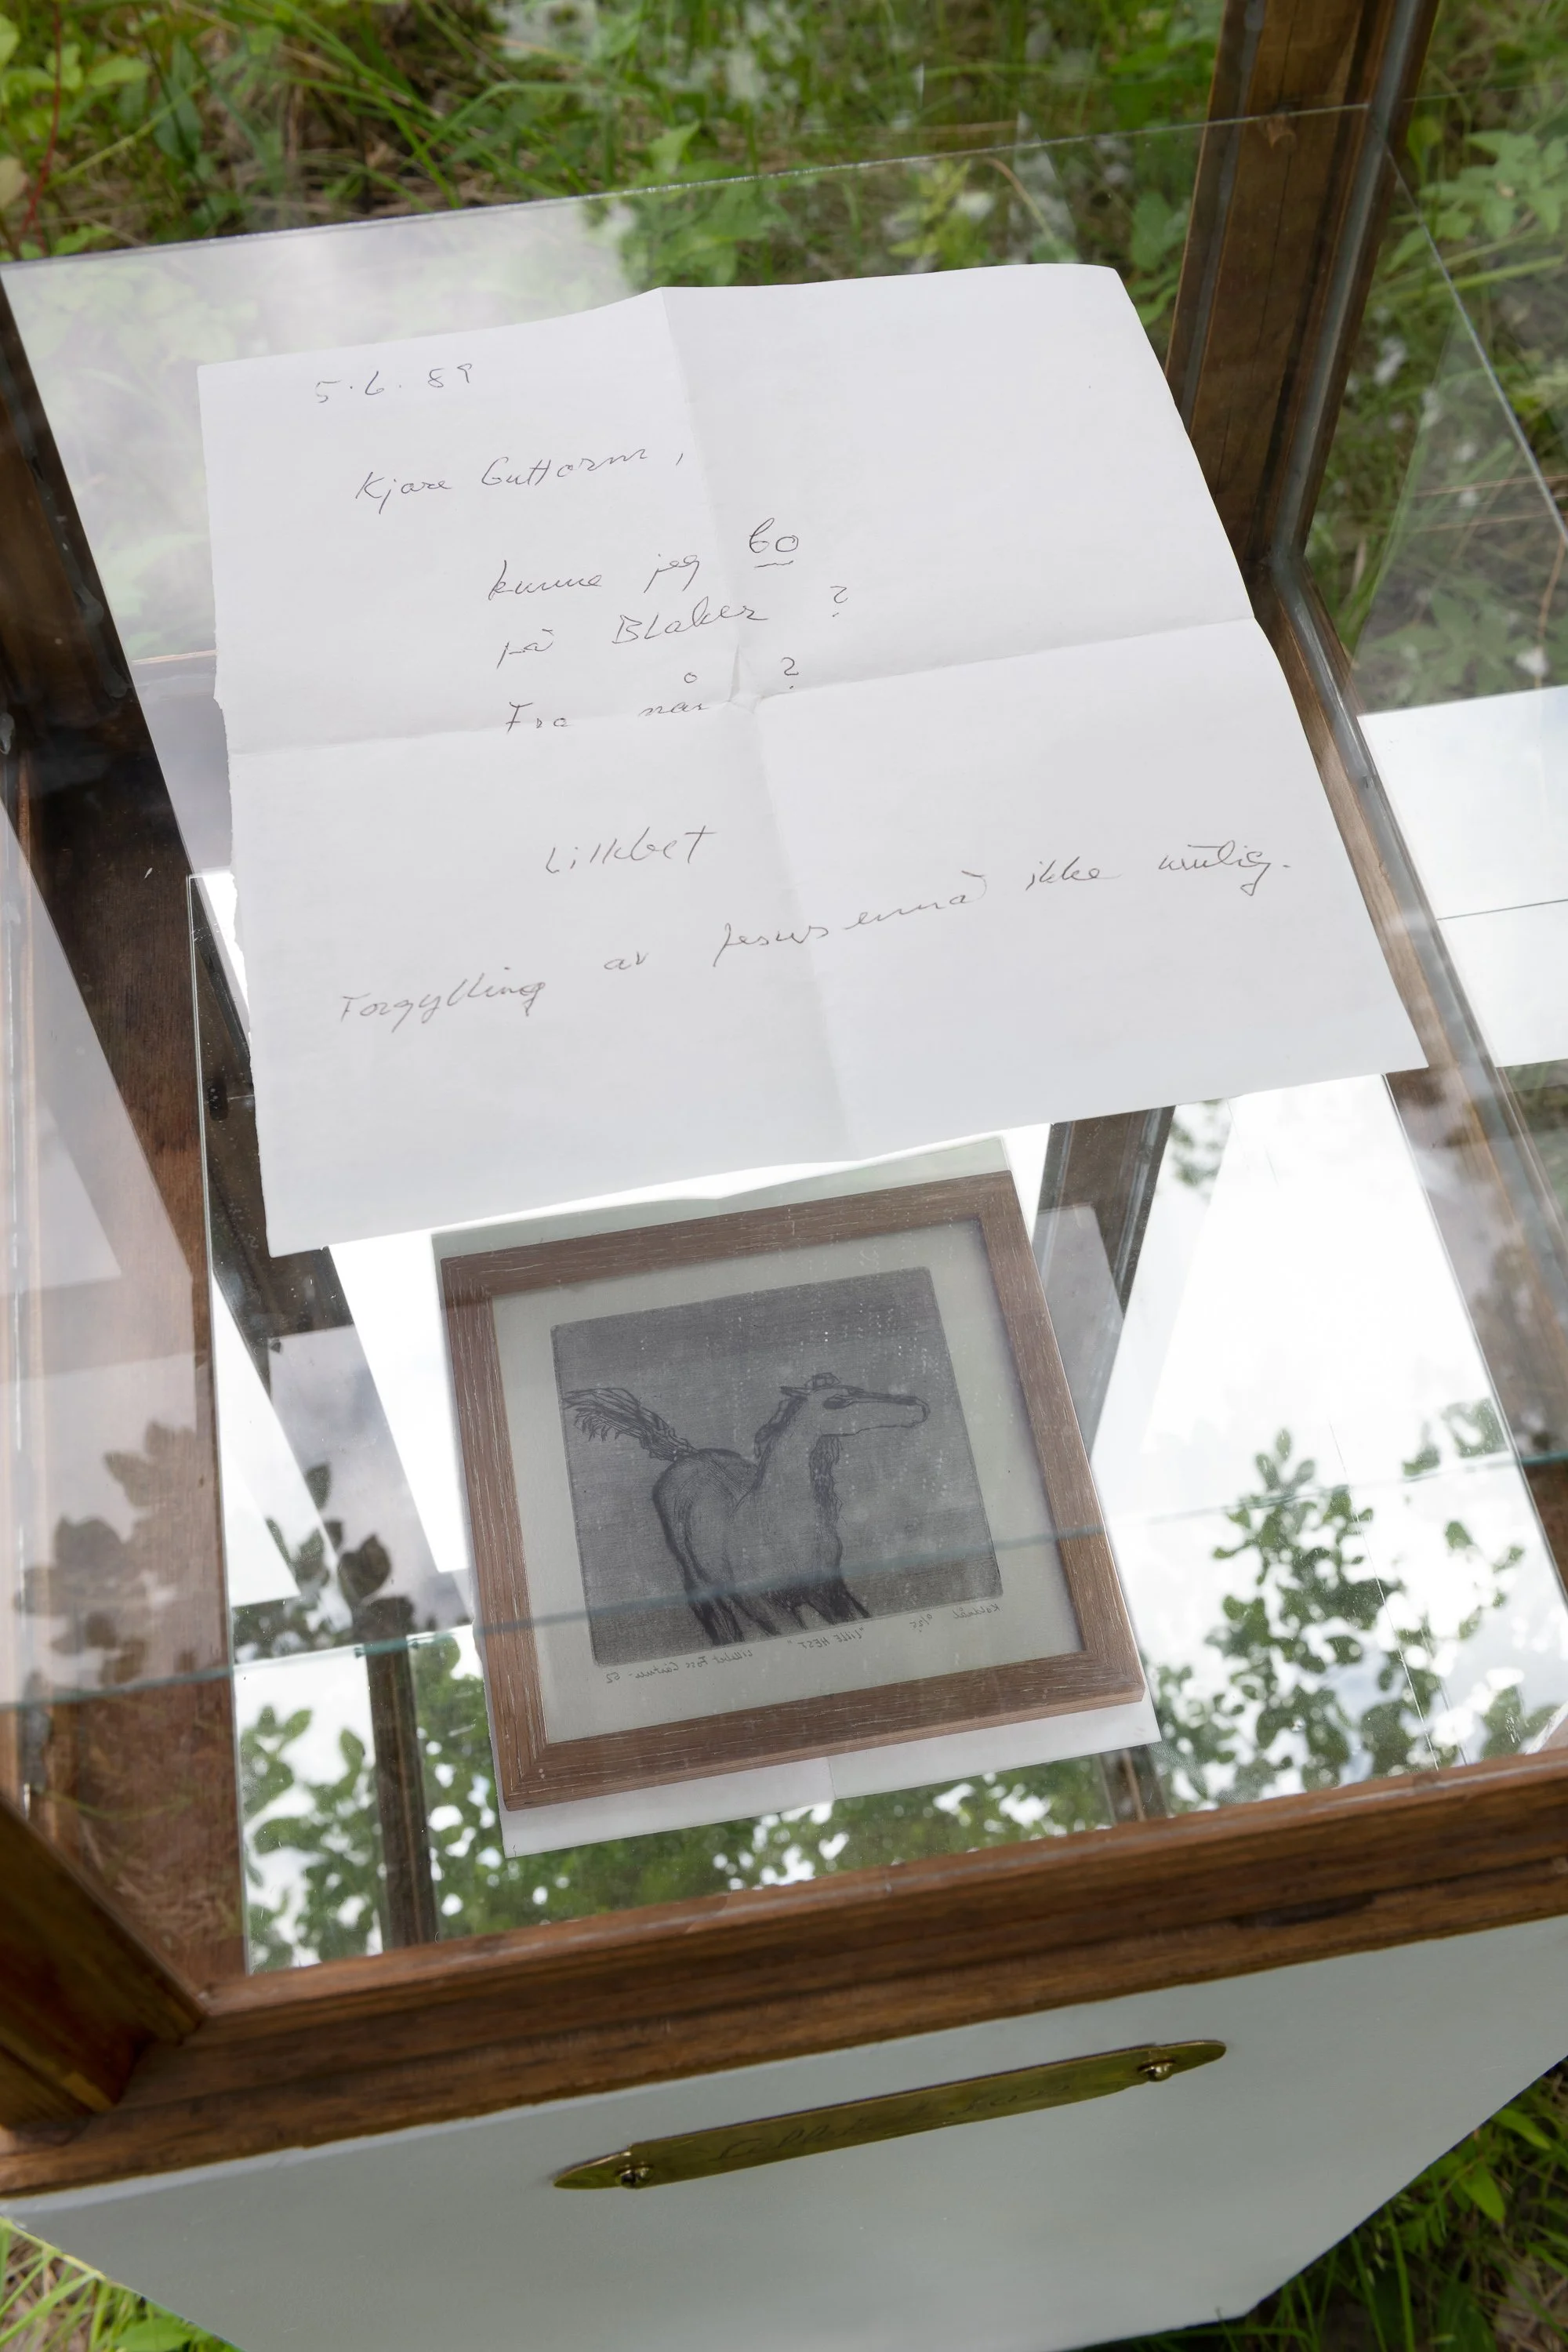 5.6.89
Kjære Guttorm,
kunne jeg bo
på Blaker ?
Fra når ?
Lillebet
Forgylling av Jesus ennå ikke mulig.
Koldnål "LILLE HEST" Lillebet Foss